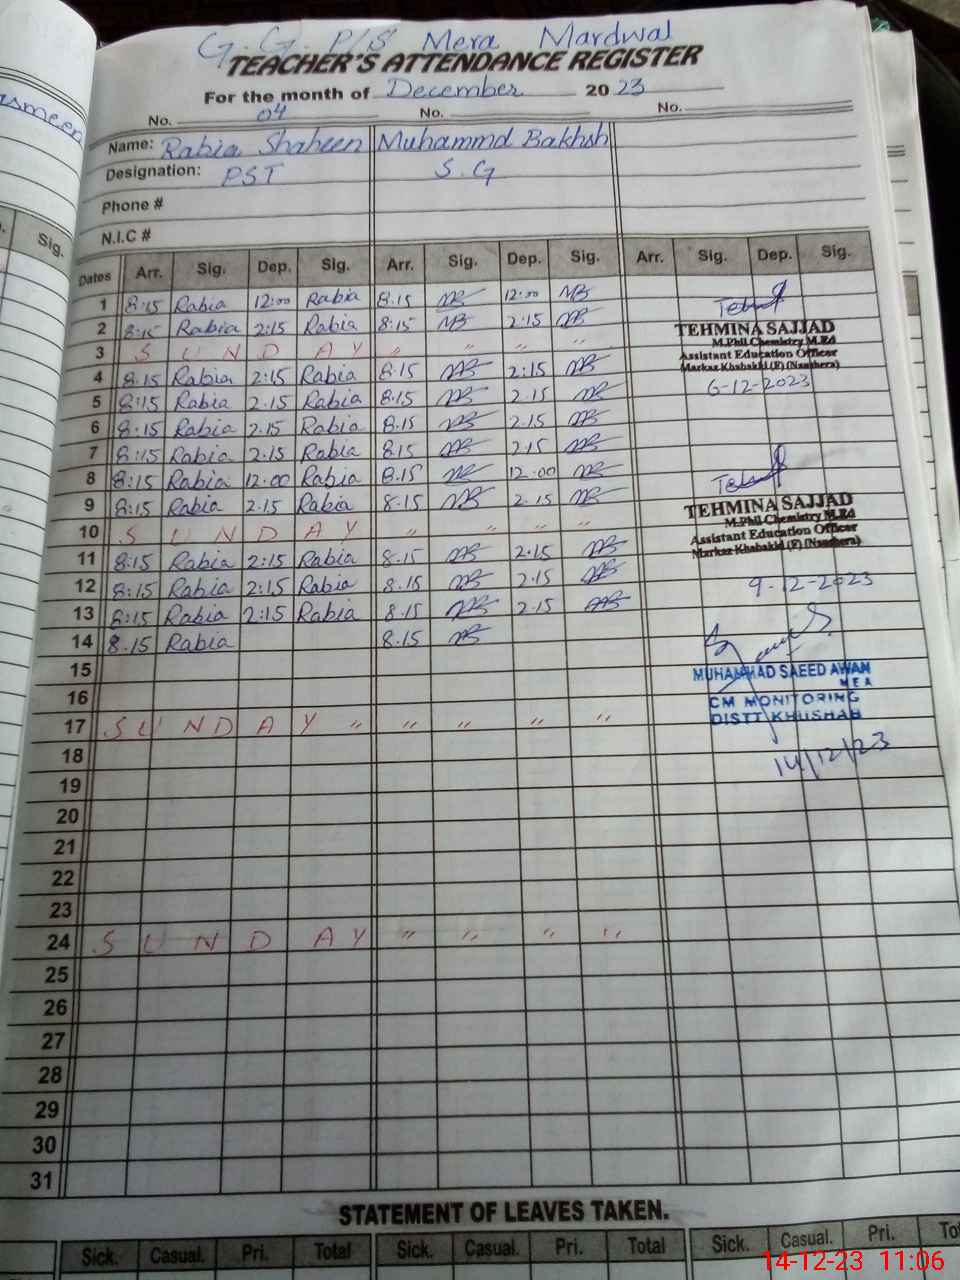 G. G. P/S Mera Mardwal
TEACHER'S ATTENDANCE REGISTER
For the month of December 20 23
No. 04 No. No.
Name: Rabia Shaheen Muhammd Bakhsh
Designation: PST S.G
Phone #
N.I.C #
Dates Arr. Sig. Dep. Sig. Arr. Sig. Dep. Sig. Arr. Sig. Dep. Sig.
1 8:15 Rabia 12:00 Rabia 8.15 MB 12:00 MB
2 8:15 Rabia 2:15 Rabia 8:15 MB 2:15 MB
3 S U N D A Y " " " "
4 8.15 Rabia 2:15 Rabia 8.15 MB 2:15 MB
5 8:15 Rabia 2.15 Rabia 8.15 MB 2.15 MB
6 8:15 Rabia 2.15 Rabia 8.15 MB 2.15 MB
7 8:15 Rabia 2.15 Rabia 8.15 MB 2.15 MB
8 8:15 Rabia 12:00 Rabia 8.15 MB 12:00 MB
9 8:15 Rabia 2.15 Rabia 8.15 MB 2.15 MB
10 S U N D A Y " " " "
11 8:15 Rabia 2:15 Rabia 8.15 MB 2.15 MB
12 8:15 Rabia 2:15 Rabia 8.15 MB 2.15 MB
13 8:15 Rabia 2:15 Rabia 8.15 MB 2.15 MB
14 8.15 Rabia 8.15 MB
15
16
17 S U N D A Y " " " " "
18
19
20
21
22
23
24 S U N D A Y " " " "
25
26
27
28
29
30
31
TEHMINA SAJJAD
M.Phil Chemistry M.Ed
Assistant Education Officer
Markaz Khabakki (F) (Naushera)
6-12-2023
TEHMINA SAJJAD
M.Phil Chemistry M.Ed
Assistant Education Officer
Markaz Khabakki (F) (Naushera)
9-12-2023
MUHAMMAD SAEED AWAN
MEA
CM MONITORING
DISTT KHUSHAB
14/12/23
STATEMENT OF LEAVES TAKEN.
Sick. Casual. Pri. Total Sick. Casual. Pri. Total Sick. Casual. Pri.
Sig.
14-12-23 11:06